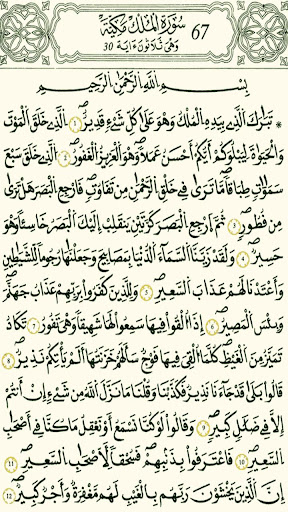 سُورَةُ الْمُلْكِ مَكِّيَّة 67
وَهْيَ ثَلَاثُونَ ءَايَة 30
بِسْمِ اللَّهِ الرَّحْمَٰنِ الرَّحِيمِ
تَبَٰرَكَ الَّذِي بِيَدِهِ الْمُلْكُ وَهُوَ عَلَىٰ كُلِّ شَيْءٍ قَدِيرٌ ١ الَّذِي خَلَقَ الْمَوْتَ
وَالْحَيَوٰةَ لِيَبْلُوَكُمْ أَيُّكُمْ أَحْسَنُ عَمَلًا وَهُوَ الْعَزِيزُ الْغَفُورُ ٢ الَّذِي خَلَقَ سَبْعَ
سَمَٰوَٰتٍ طِبَاقًا مَّا تَرَىٰ فِي خَلْقِ الرَّحْمَٰنِ مِن تَفَٰوُتٍ فَارْجِعِ الْبَصَرَ هَلْ تَرَىٰ
مِن فُطُورٍ ٣ ثُمَّ ارْجِعِ الْبَصَرَ كَرَّتَيْنِ يَنقَلِبْ إِلَيْكَ الْبَصَرُ خَاسِئًا وَهُوَ
حَسِيرٌ ٤ وَلَقَدْ زَيَّنَّا السَّمَاءَ الدُّنْيَا بِمَصَٰبِيحَ وَجَعَلْنَٰهَا رُجُومًا لِّلشَّيَٰطِينِ
وَأَعْتَدْنَا لَهُمْ عَذَابَ السَّعِيرِ ٥ وَلِلَّذِينَ كَفَرُوا بِرَبِّهِمْ عَذَابُ جَهَنَّمَ
وَبِئْسَ الْمَصِيرُ ٦ إِذَا أُلْقُوا فِيهَا سَمِعُوا لَهَا شَهِيقًا وَهِيَ تَفُورُ ٧ تَكَادُ
تَمَيَّزُ مِنَ الْغَيْظِ كُلَّمَا أُلْقِيَ فِيهَا فَوْجٌ سَأَلَهُمْ خَزَنَتُهَا أَلَمْ يَأْتِكُمْ نَذِيرٌ ٨
قَالُوا بَلَىٰ قَدْ جَاءَنَا نَذِيرٌ فَكَذَّبْنَا وَقُلْنَا مَا نَزَّلَ اللَّهُ مِن شَيْءٍ إِنْ أَنتُمْ
إِلَّا فِي ضَلَٰلٍ كَبِيرٍ ٩ وَقَالُوا لَوْ كُنَّا نَسْمَعُ أَوْ نَعْقِلُ مَا كُنَّا فِي أَصْحَٰبِ
السَّعِيرِ ١٠ فَاعْتَرَفُوا بِذَنبِهِمْ فَسُحْقًا لِّأَصْحَٰبِ السَّعِيرِ ١١
إِنَّ الَّذِينَ يَخْشَوْنَ رَبَّهُم بِالْغَيْبِ لَهُم مَّغْفِرَةٌ وَأَجْرٌ كَبِيرٌ ١٢